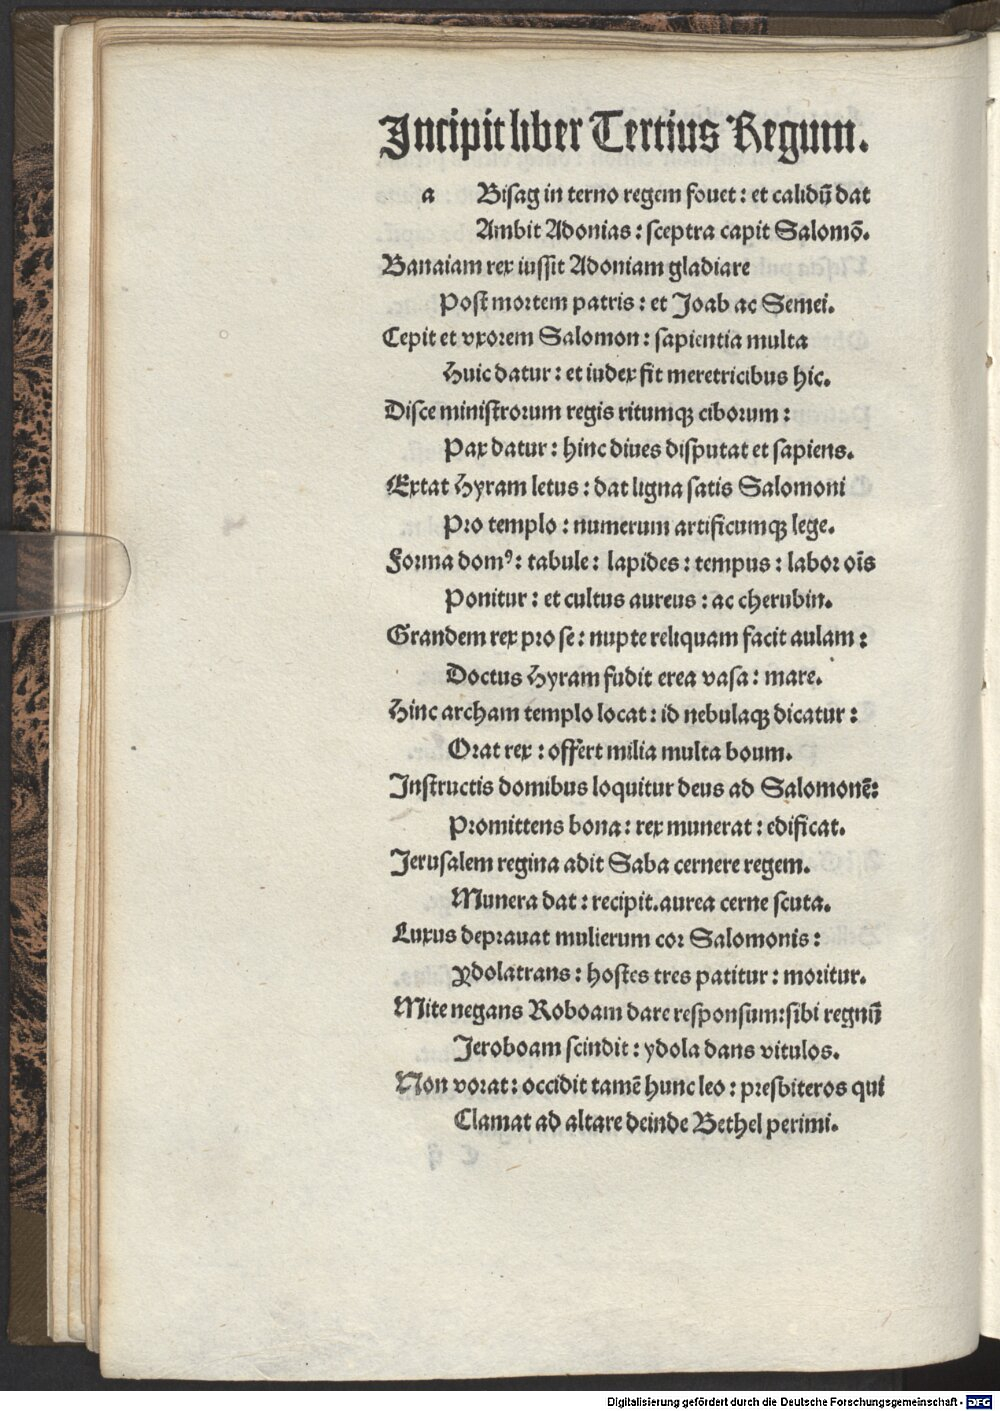 Incipit liber Tertius Regum.
a Bisag in terno regem fouet : et calidū dat
Ambit Adonias : sceptra capit Salomō.
Banaiam rex iussit Adoniam gladiare
Post mortem patris : et Joab ac Semei.
Cepit et vxorem Salomon : sapientia multa
Huic datur : et iudex fit meretricibus hic.
Disce ministrorum regis ritumqꝫ ciborum :
Pax datur : hinc diues disputat et sapiens.
Extat Hyram letus : dat ligna satis Salomoni
Pro templo : numerum artificumqꝫ lege.
Forma domꝰ : tabule : lapides : tempus : labor oīs
Ponitur : et cultus aureus : ac cherubin.
Grandem rex pro se : nupte reliquam facit aulam :
Doctus Hyram fudit erea vasa : mare.
Hinc archam templo locat : id nebulaqꝫ dicatur :
Orat rex : offert milia multa boum.
Instructis domibus loquitur deus ad Salomonē:
Promittens bona : rex munerat : edificat.
Jerusalem regina adit Saba cernere regem.
Munera dat : recipit.aurea cerne scuta.
Luxus deprauat mulierum cor Salomonis :
Ydolatrans : hostes tres patitur : moritur.
Mite negans Roboam dare responsum:sibi regnū
Jeroboam scindit : ydola dans vitulos.
Non vorat : occidit tamē hunc leo : presbiteros qui
Clamat ad altare deinde Bethel perimi.
Digitalisierung gefördert durch die Deutsche Forschungsgemeinschaft - DFG